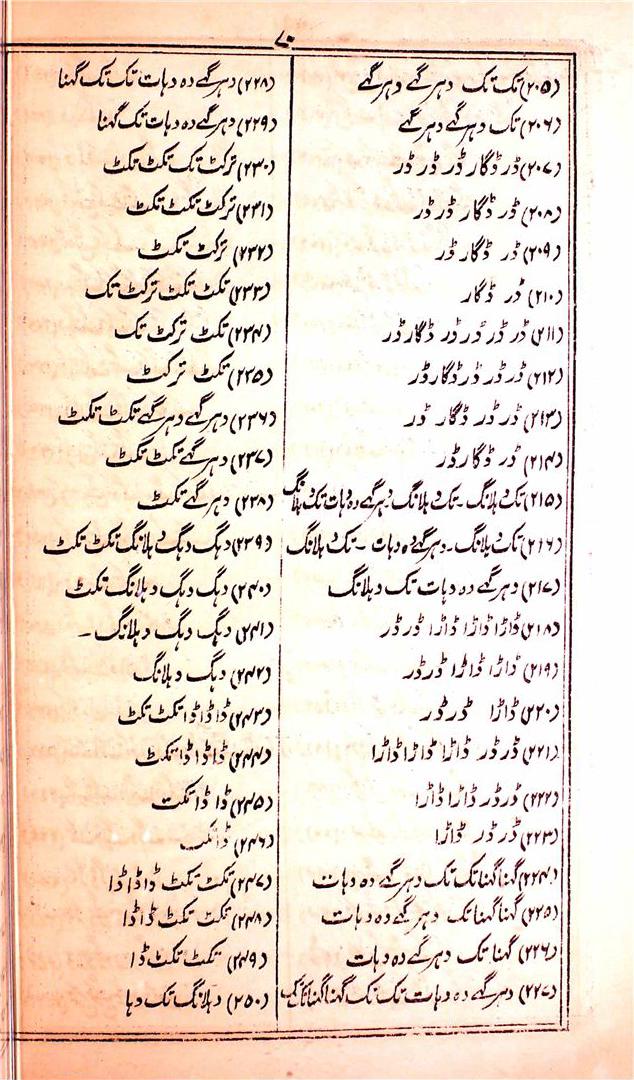 ۷۰
(۲۰۵) تک تک دہر گہے دہر گہے
(۲۰۶) تک دہر گہے دہر گہے
(۲۰۷) ڈر ڈگار ڈر ڈر ڈر
(۲۰۸) ڈر ڈگار ڈر ڈر
(۲۰۹) ڈر ڈگار ڈر
(۲۱۰) ڈر ڈگار
(۲۱۱) ڈر ڈر ڈر ڈر ڈگار ڈر
(۲۱۲) ڈر ڈر ڈر ڈگار ڈر
(۲۱۳) ڈر ڈر ڈگار ڈر
(۲۱۴) ڈر ڈگار ڈر
(۲۱۵) تک دہلانگ ۔ تک دہلانگ دہر گہے دہ دہات تک دہلانگ
(۲۱۶) تک دہلانگ ۔ دہر گہے دہ دہات ۔ تک دہلانگ
(۲۱۷) دہر گہے دہ دہات تک دہلانگ
(۲۱۸) ڈاڑا ڈاڑا ڈاڑا ڈر ڈر
(۲۱۹) ڈاڑا ڈاڑا ڈر ڈر
(۲۲۰) ڈاڑا ڈر ڈر
(۲۲۱) ڈر ڈر ڈاڑا ڈاڑا ڈاڑا
(۲۲۲) ڈر ڈر ڈاڑا ڈاڑا
(۲۲۳) ڈر ڈر ڈاڑا
(۲۲۴) گہنا گہنا تک تک دہر گہے دہ دہات
(۲۲۵) گہنا گہنا تک دہر گہے دہ دہات
(۲۲۶) گہنا تک دہر گہے دہ دہات
(۲۲۷) دہر گہے دہ دہات تک تک گہنا گہنا
(۲۲۸) دہر گہے دہ دہات تک تک گہنا
(۲۲۹) دہر گہے دہ دہات تک گہنا
(۲۳۰) ترکٹ تک تکٹ تکٹ
(۲۳۱) ترکٹ تکٹ تکٹ
(۲۳۲) ترکٹ تکٹ
(۲۳۳) تکٹ تکٹ ترکٹ تک
(۲۳۴) تکٹ ترکٹ تک
(۲۳۵) تکٹ ترکٹ
(۲۳۶) دہر گہے دہر گہے تکٹ تکٹ
(۲۳۷) دہر گہے تکٹ تکٹ
(۲۳۸) دہر گہے تکٹ
(۲۳۹) دہگ دہگ دہلانگ تکٹ تکٹ
(۲۴۰) دہگ دہگ دہلانگ تکٹ
(۲۴۱) دہگ دہگ دہلانگ ۔
(۲۴۲) دہگ دہلانگ
(۲۴۳) ڈا ڈا ڈا تکٹ تکٹ
(۲۴۴) ڈا ڈا ڈا تکٹ
(۲۴۵) ڈا ڈا تکٹ
(۲۴۶) ڈا
(۲۴۷) تکٹ تکٹ ڈا ڈا ڈا
(۲۴۸) تکٹ تکٹ ڈا ڈا
(۲۴۹) تکٹ تکٹ ڈا
(۲۵۰) دہلانگ تک دہا